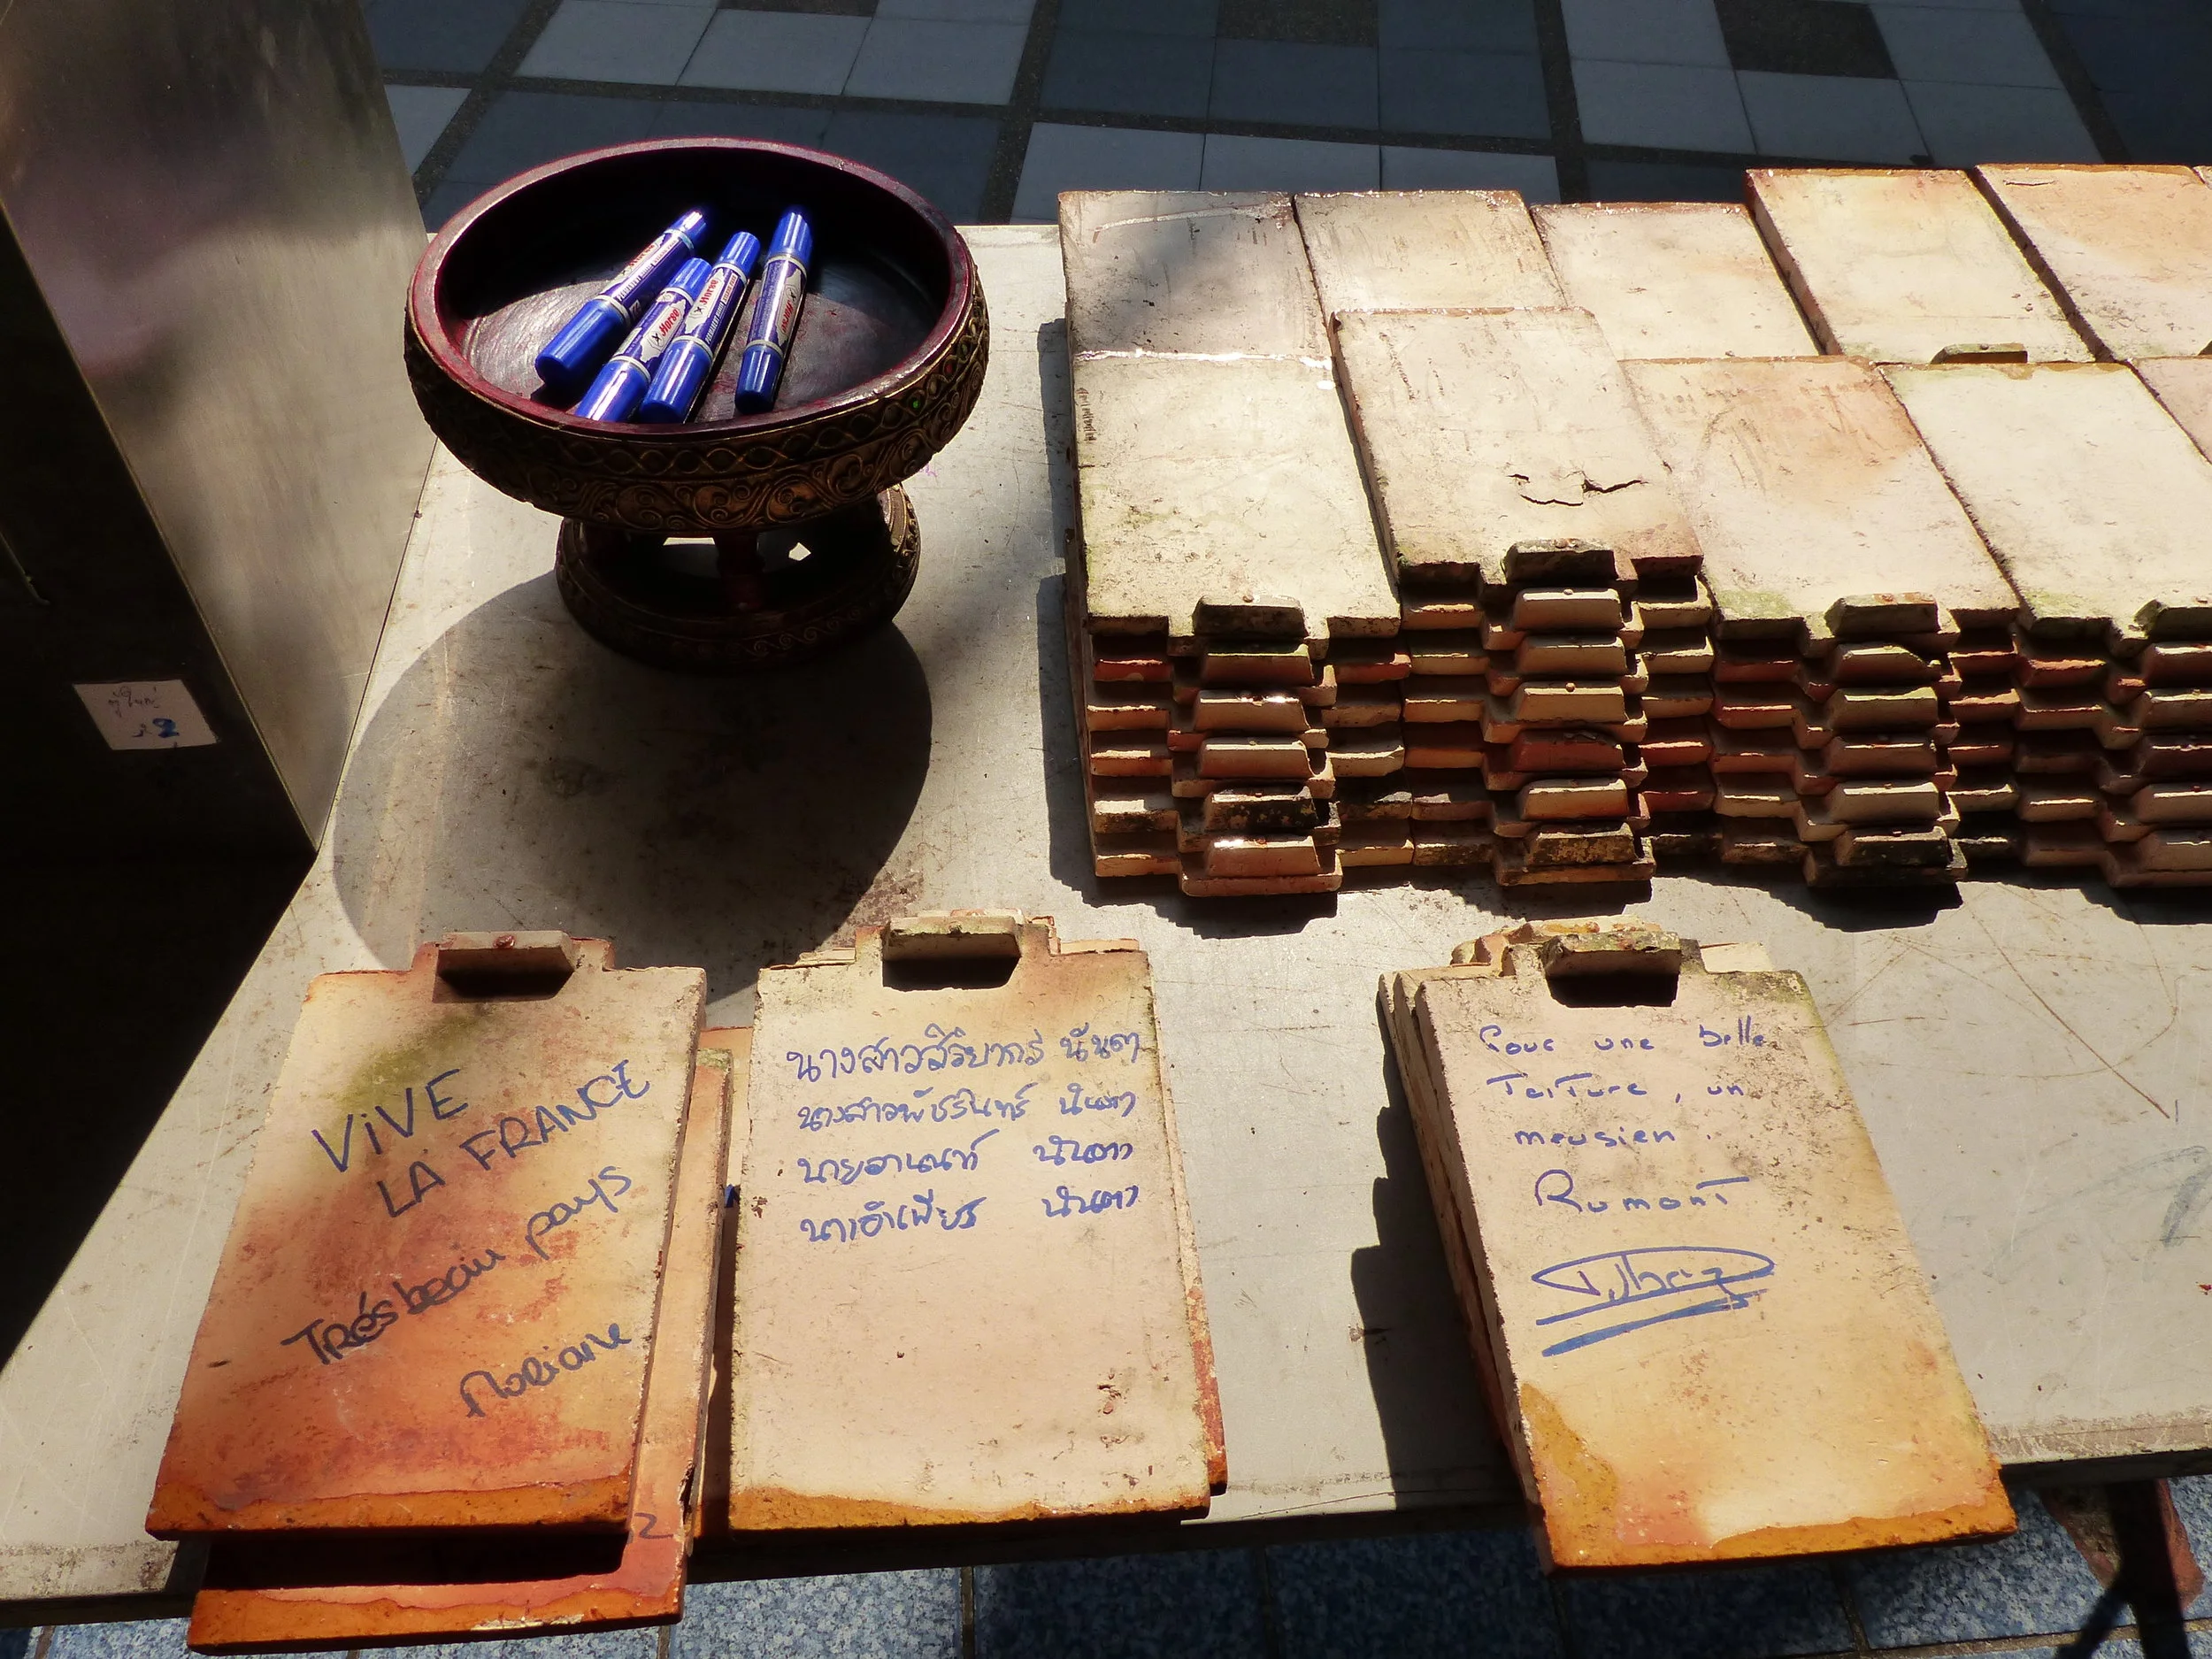 Horse
Horse
Horse
Horse
2
VIVE
LA FRANCE
TRÉS beau pays
นางสาวสิริยากร นันตา
นางสาวพัชรินทร์ นันตา
นายอานนท์ นันตา
นันตา
Pour une belle
Toiture, un
meusien.
Rumont